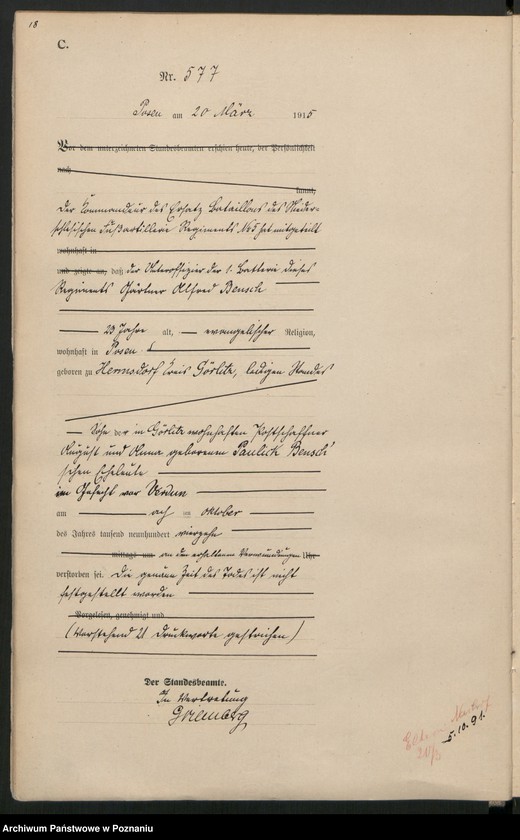 18
C.
Nr. 577
Posen am 20 März 1915
Vor dem unterzeichneten Standesbeamten erschien heute, der Persönlichkeit
nach
kannt,
Der Kommandeur des Ersatz Bataillons des Nieder-
schlesischen Fußartillerie Regiments No 5 hat mitgeteilt
wohnhaft in
und zeigte an, daß der Unteroffizier der 1. Batterie dieses
Regiments Gärtner Alfred Bensch
23 Jahre alt, evangelischer Religion,
wohnhaft in Posen
geboren zu Hermsdorf Kreis Görlitz, ledigen Standes
Sohn der in Görlitz wohnhaften Postschaffner
August und Anna geborenen Paulick Bensch'
schen Eheleute
im Gefecht vor Verdun
am im Oktober
des Jahres tausend neunhundert vierzehn
mittags um an den erhaltenen Verwundungen Uhr
verstorben sei. Die genaue Zeit des Todes ist nicht
festgestellt worden
Vorgelesen, genehmigt und
(Vorstehend 21 Druckworte gestrichen)
Der Standesbeamte.
In Vertretung
5.10.91.
Archiwum Państwowe w Poznaniu